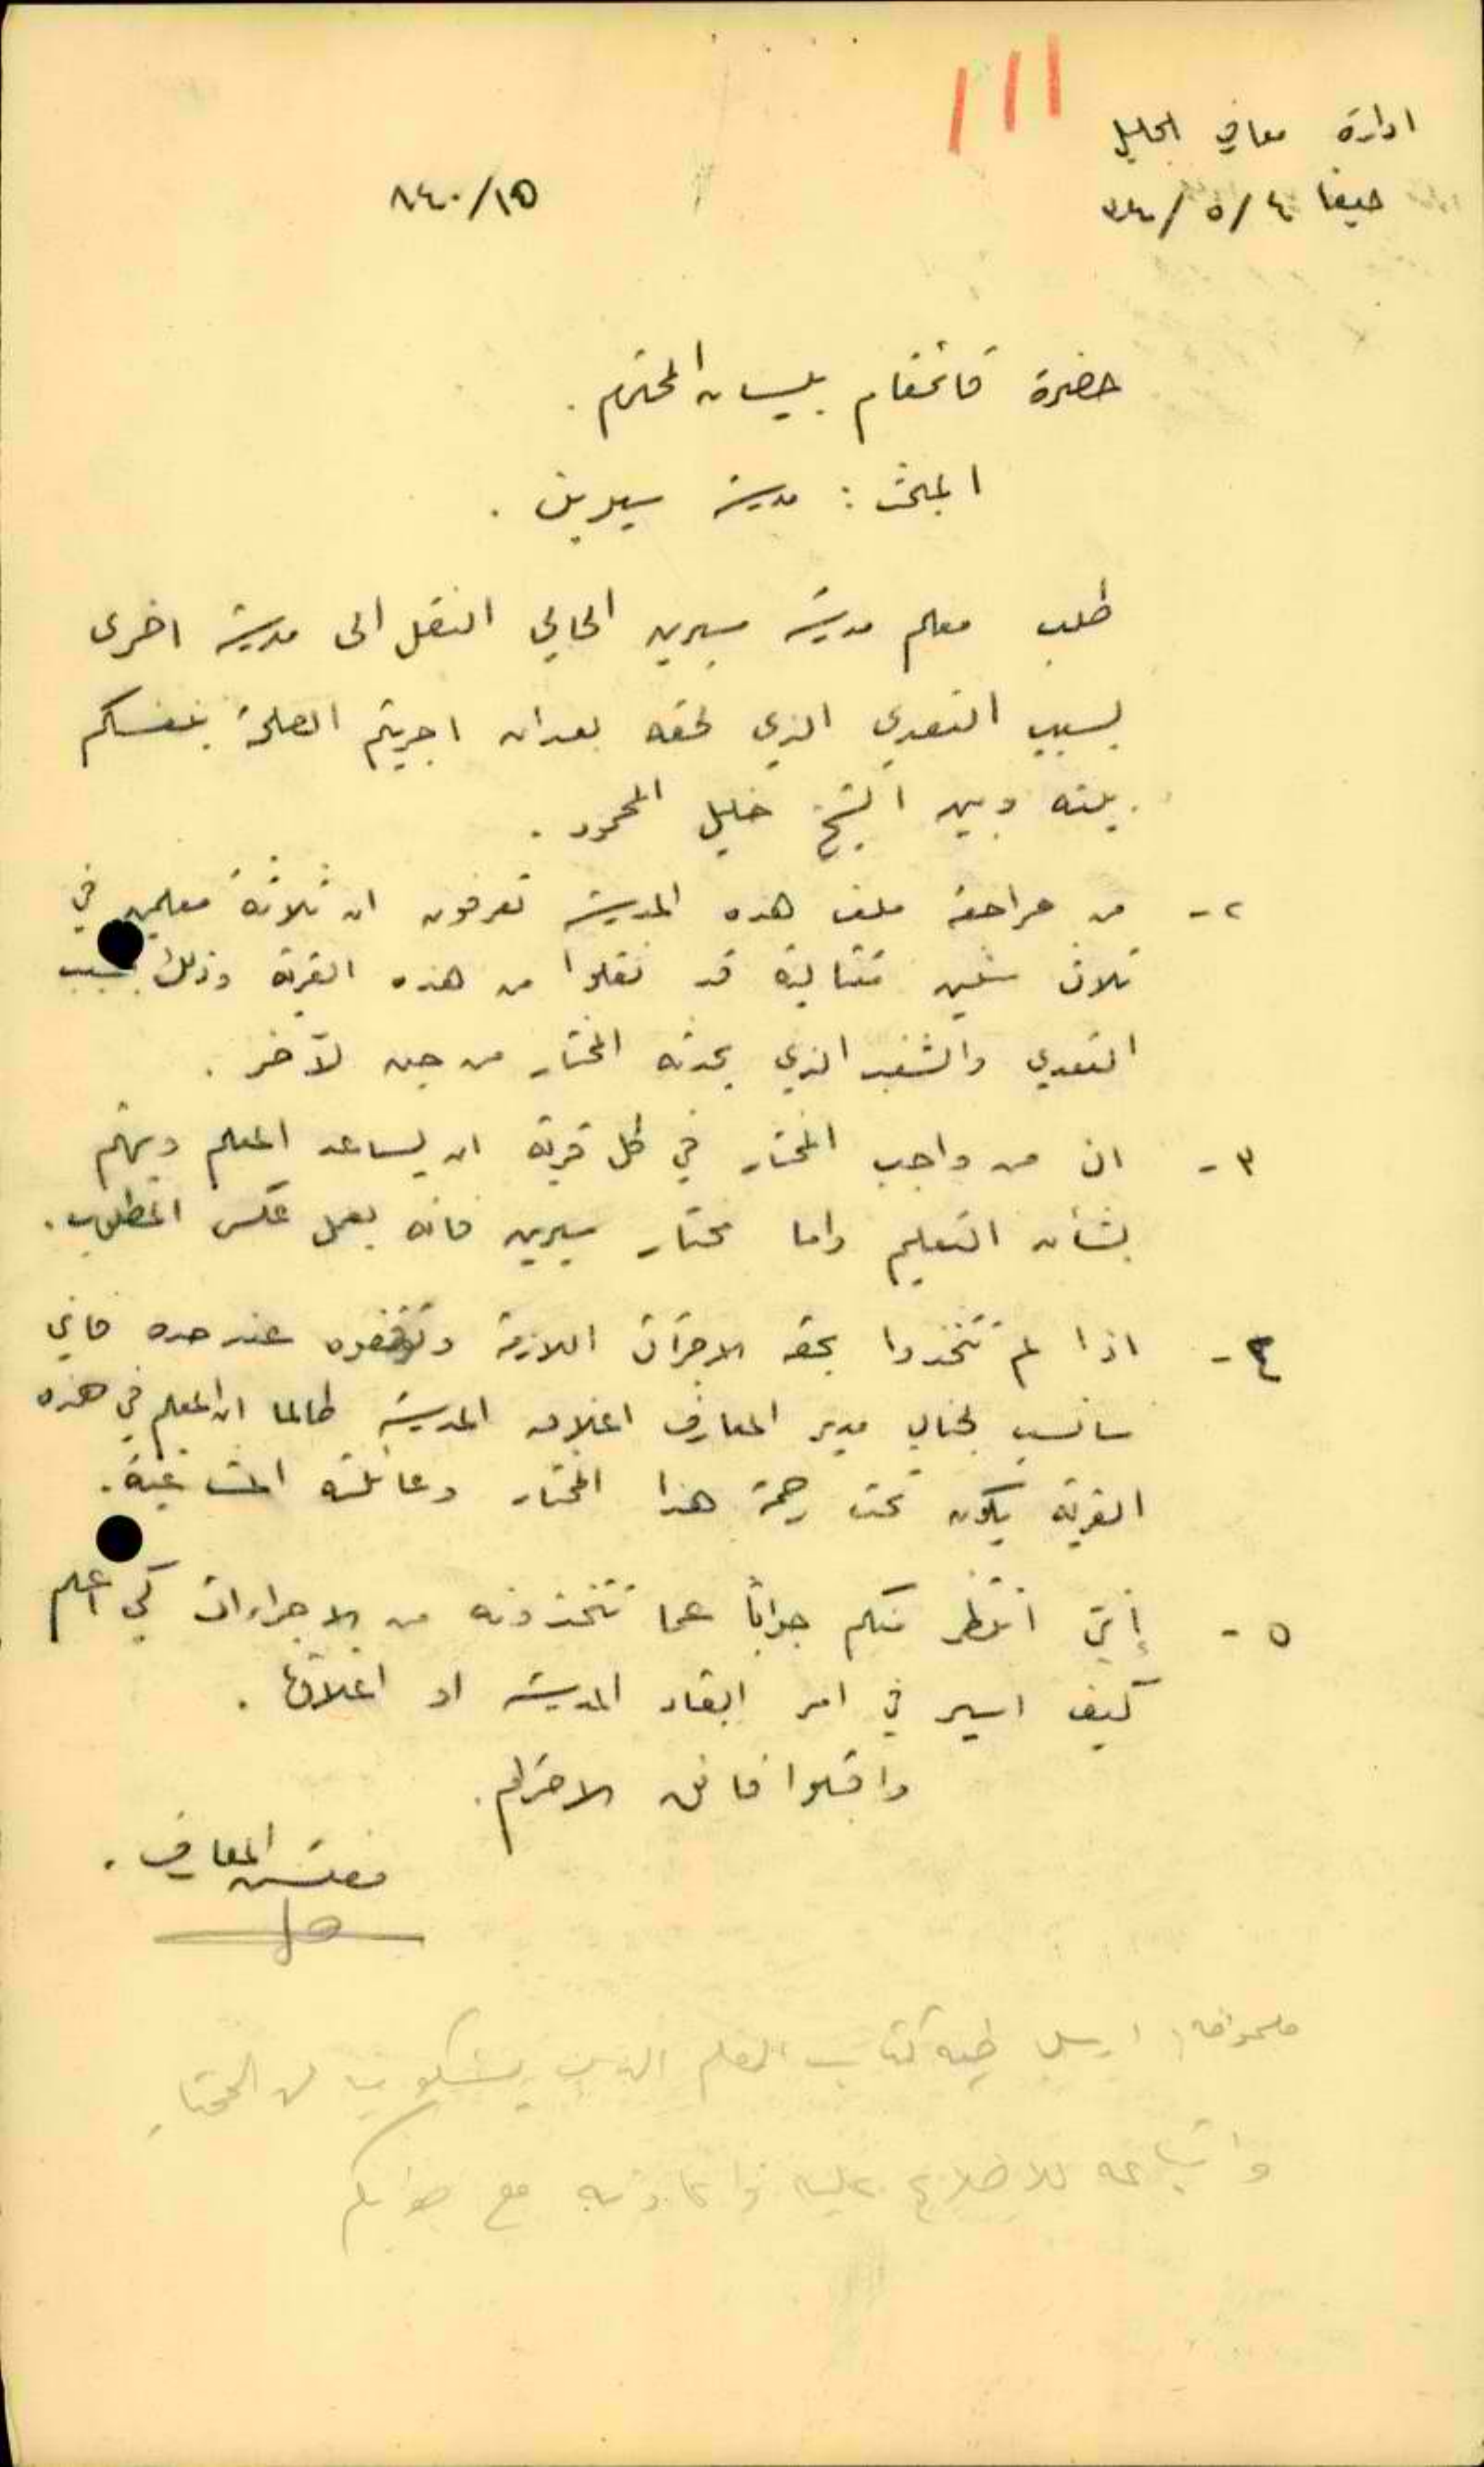 ادارة معارف الجليل
حيفا ٤/٥/
٨٤٠/١٥
حضرة قائمقام بيسان المحترم .
المبحث : مدرسة سيرين .
طلب معلم مدرسة سيرين الحالي النقل الى مدرسة اخرى
بسبب التعدي الذي لحقه بعد ان اجريتم المصلحة بنفسكم
بينه وبين الشيخ خليل المحمود .
٢- من مراجعة ملف هذه المدرسة تعرفون ان ثلاثة معلمين في
ثلاث سنين متتالية قد نقلوا من هذه القرية وذلك بسبب
التعدي والشغب الذي يحدثه المختار من حين لآخر .
٣- ان من واجب المختار في كل قرية ان يساعد المعلم ويهتم
بشأن التعليم واما مختار سيرين فانه يعمل عكس المطلوب .
٤- اذا لم تتخذوا بحقه الاجرآت اللازمة وتوقفوه عند حده فاني
سانسب لجناب مدير المعارف اغلاق المدرسة طالما ان المعلم في هذه
القرية يكون تحت رحمة هذا المختار وعائلته المشاغبة .
٥- إنني انتظر منكم جواباً عما تتخذونه من الاجراءات كي اعلم
كيف اسير في امر ابقاء المدرسة او اغلاقها .
واقبلوا فائق الاحترام .
مفتش المعارف .
ملحوظة ارسل طيه كتاب المعلم الذي يشكو من المختار
واتباعه للاطلاع عليه واعادته مع جوابكم